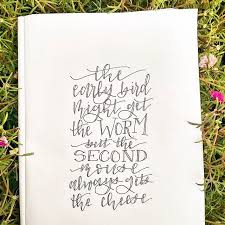 the
early bird
might get
the WORM
but the
SECOND
mouse
always gets
the cheese